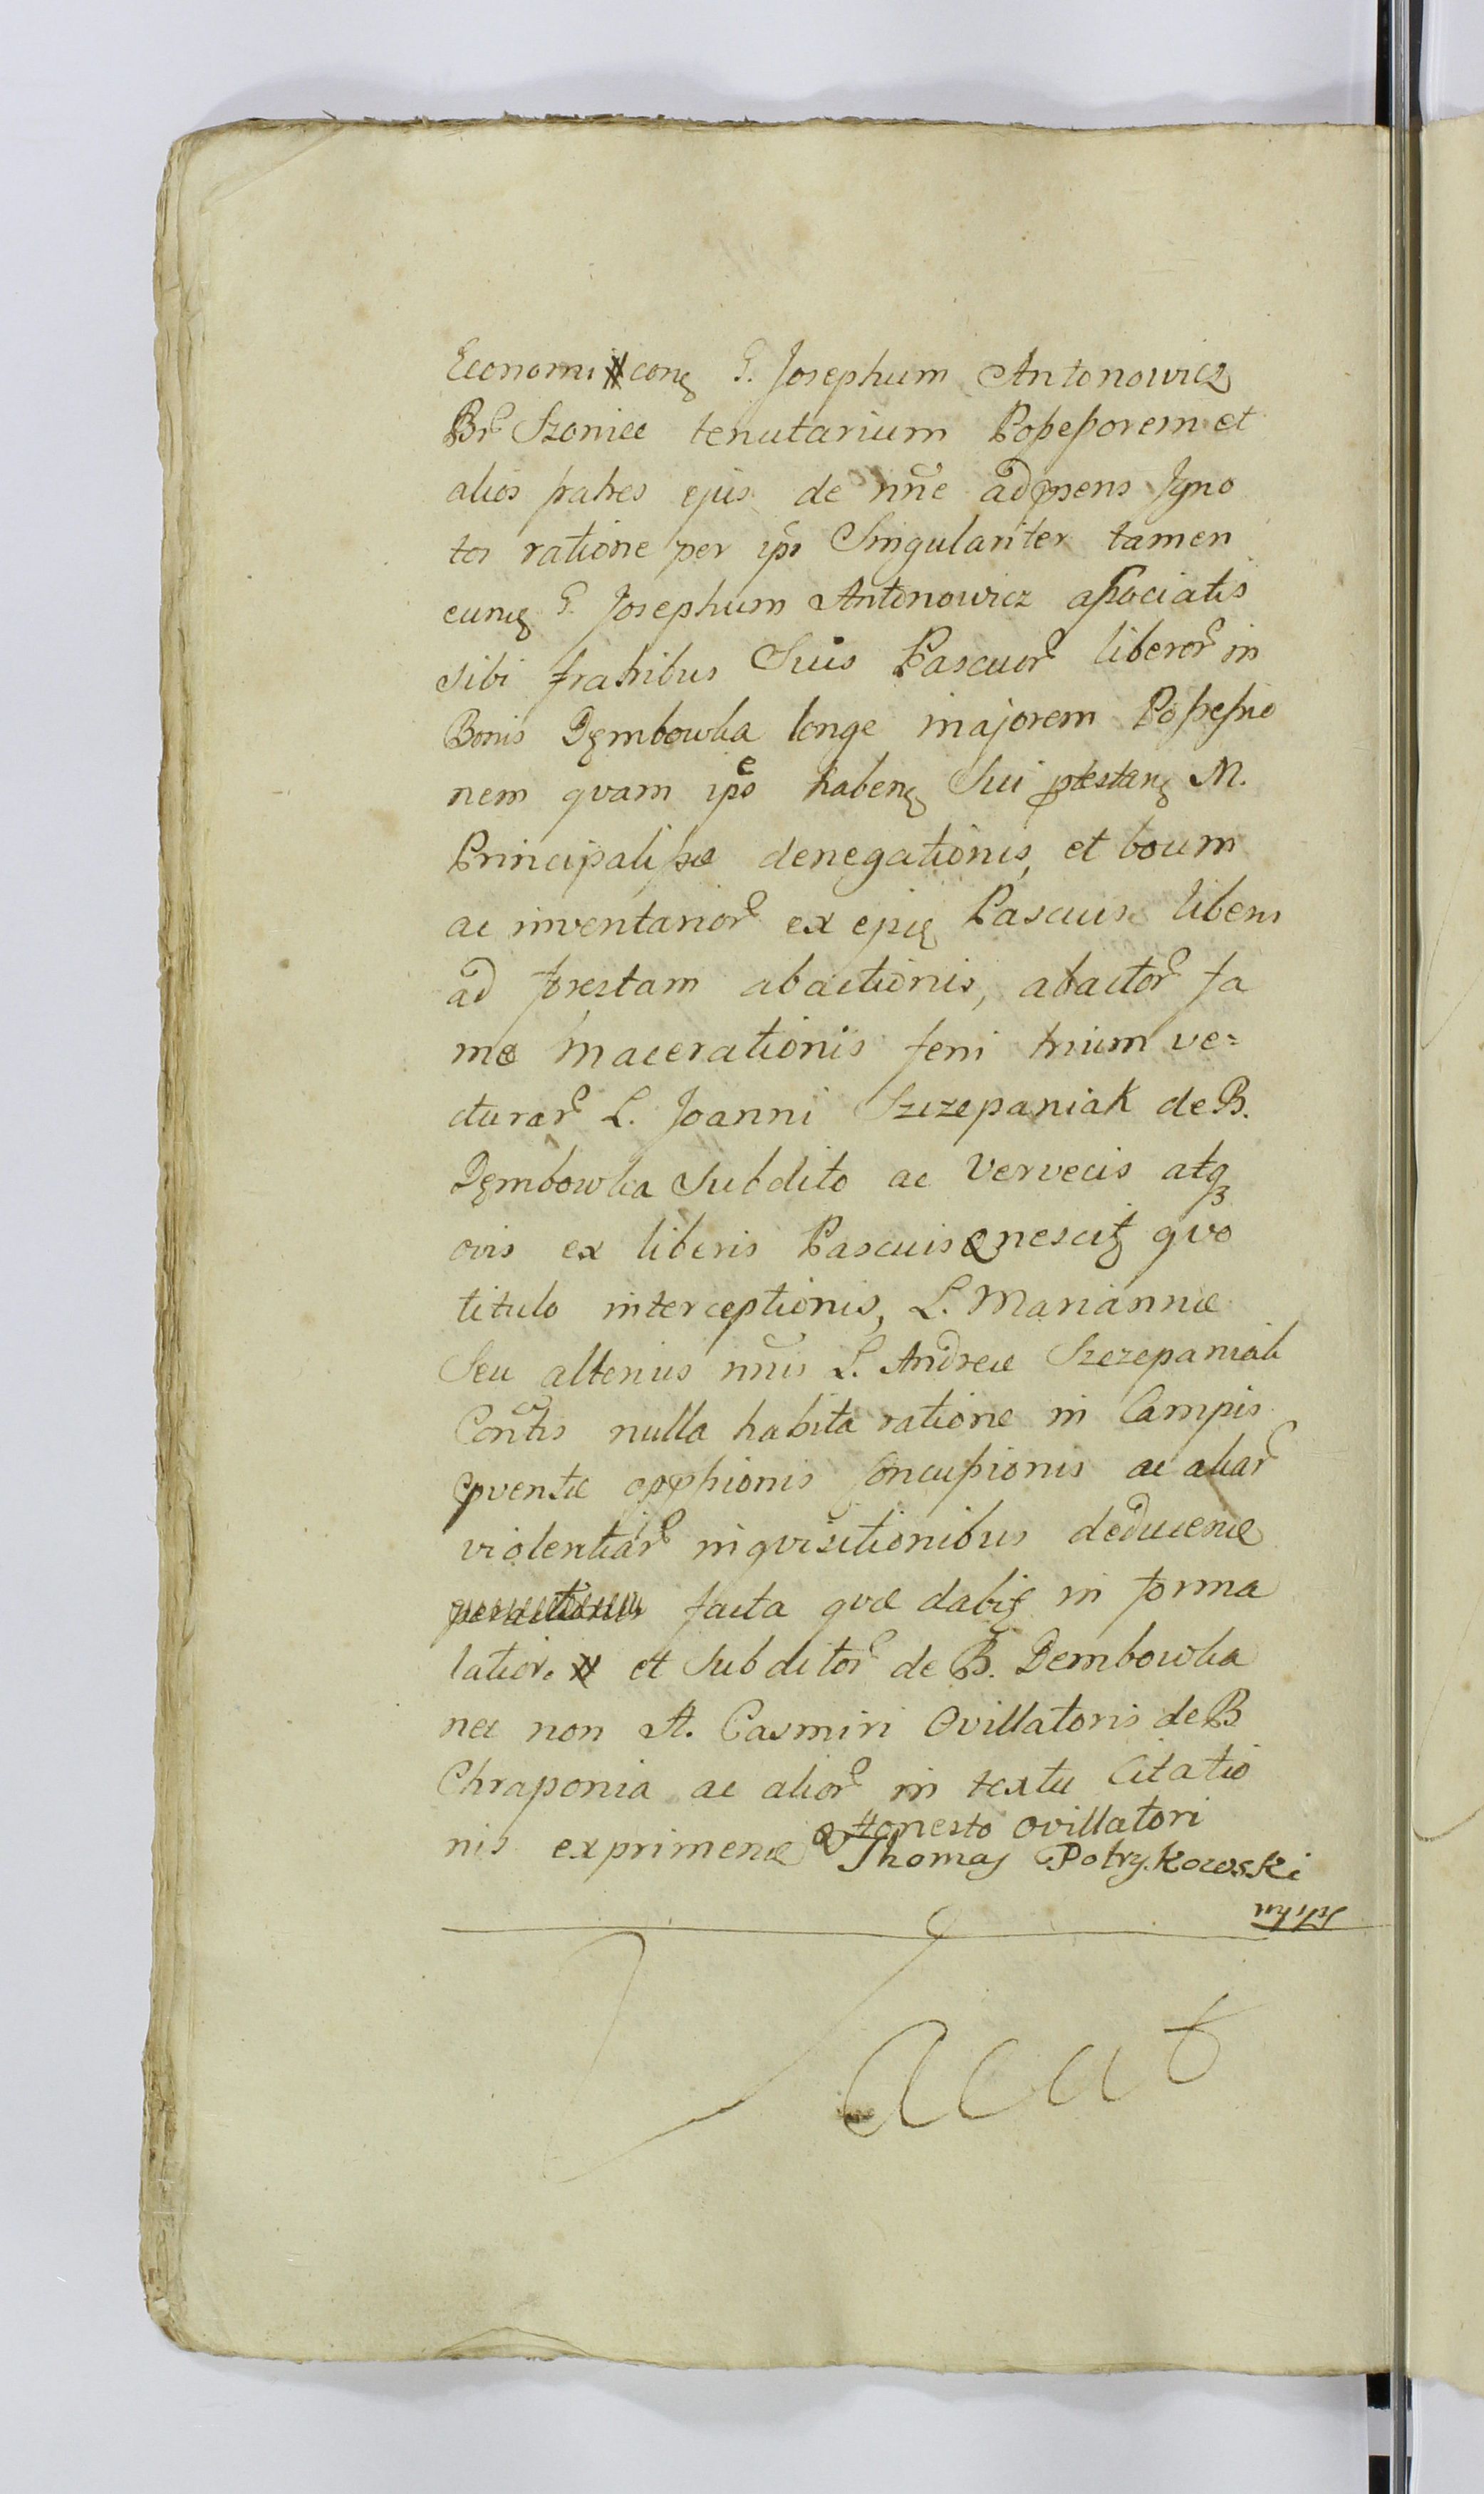 Economi con G. Josephum Antonowicz
Br Szoniec tenutarium Possessorem et
alios fratres ejus de nne ad psens Igno
tos ratione per ips Singulariter tamen
eund G. Josephum Antonowicz associatis
sibi fratribus Suis Pascuor liberor in
Bonis Dęmbowka longe majorem Possessio
nem qvam ipse haben Sui pstan M.
Principalissæ denegationis, et boum
ac inventarior ex ejusd Pascuis liberis
ad forestam abactionis, abactor fa
me macerationis feni trium ve=
cturar L. Joanni Szczepaniak de B.
Dęmbowka Subdito ac Vervecis atq
ovis ex liberis Pascuis nescit qvo
titulo interceptionis, L. Mariannæ
Seu alterius nnis L. Andreæ Szczepaniak
Contis nulla habita ratione in Campis
pventæ opphionis Concussionis ac aliar
violentiar inqvisitionibus deducen
facta qvæ dabit in forma
latior. et Subditor de B. Dembowka
nec non H. Casmiri Ovillatoris de B
Chraponia ac alior in textu Citatio
nis exprimen & Honesto Ovillatori
Thomas Potrykowski
Vacat